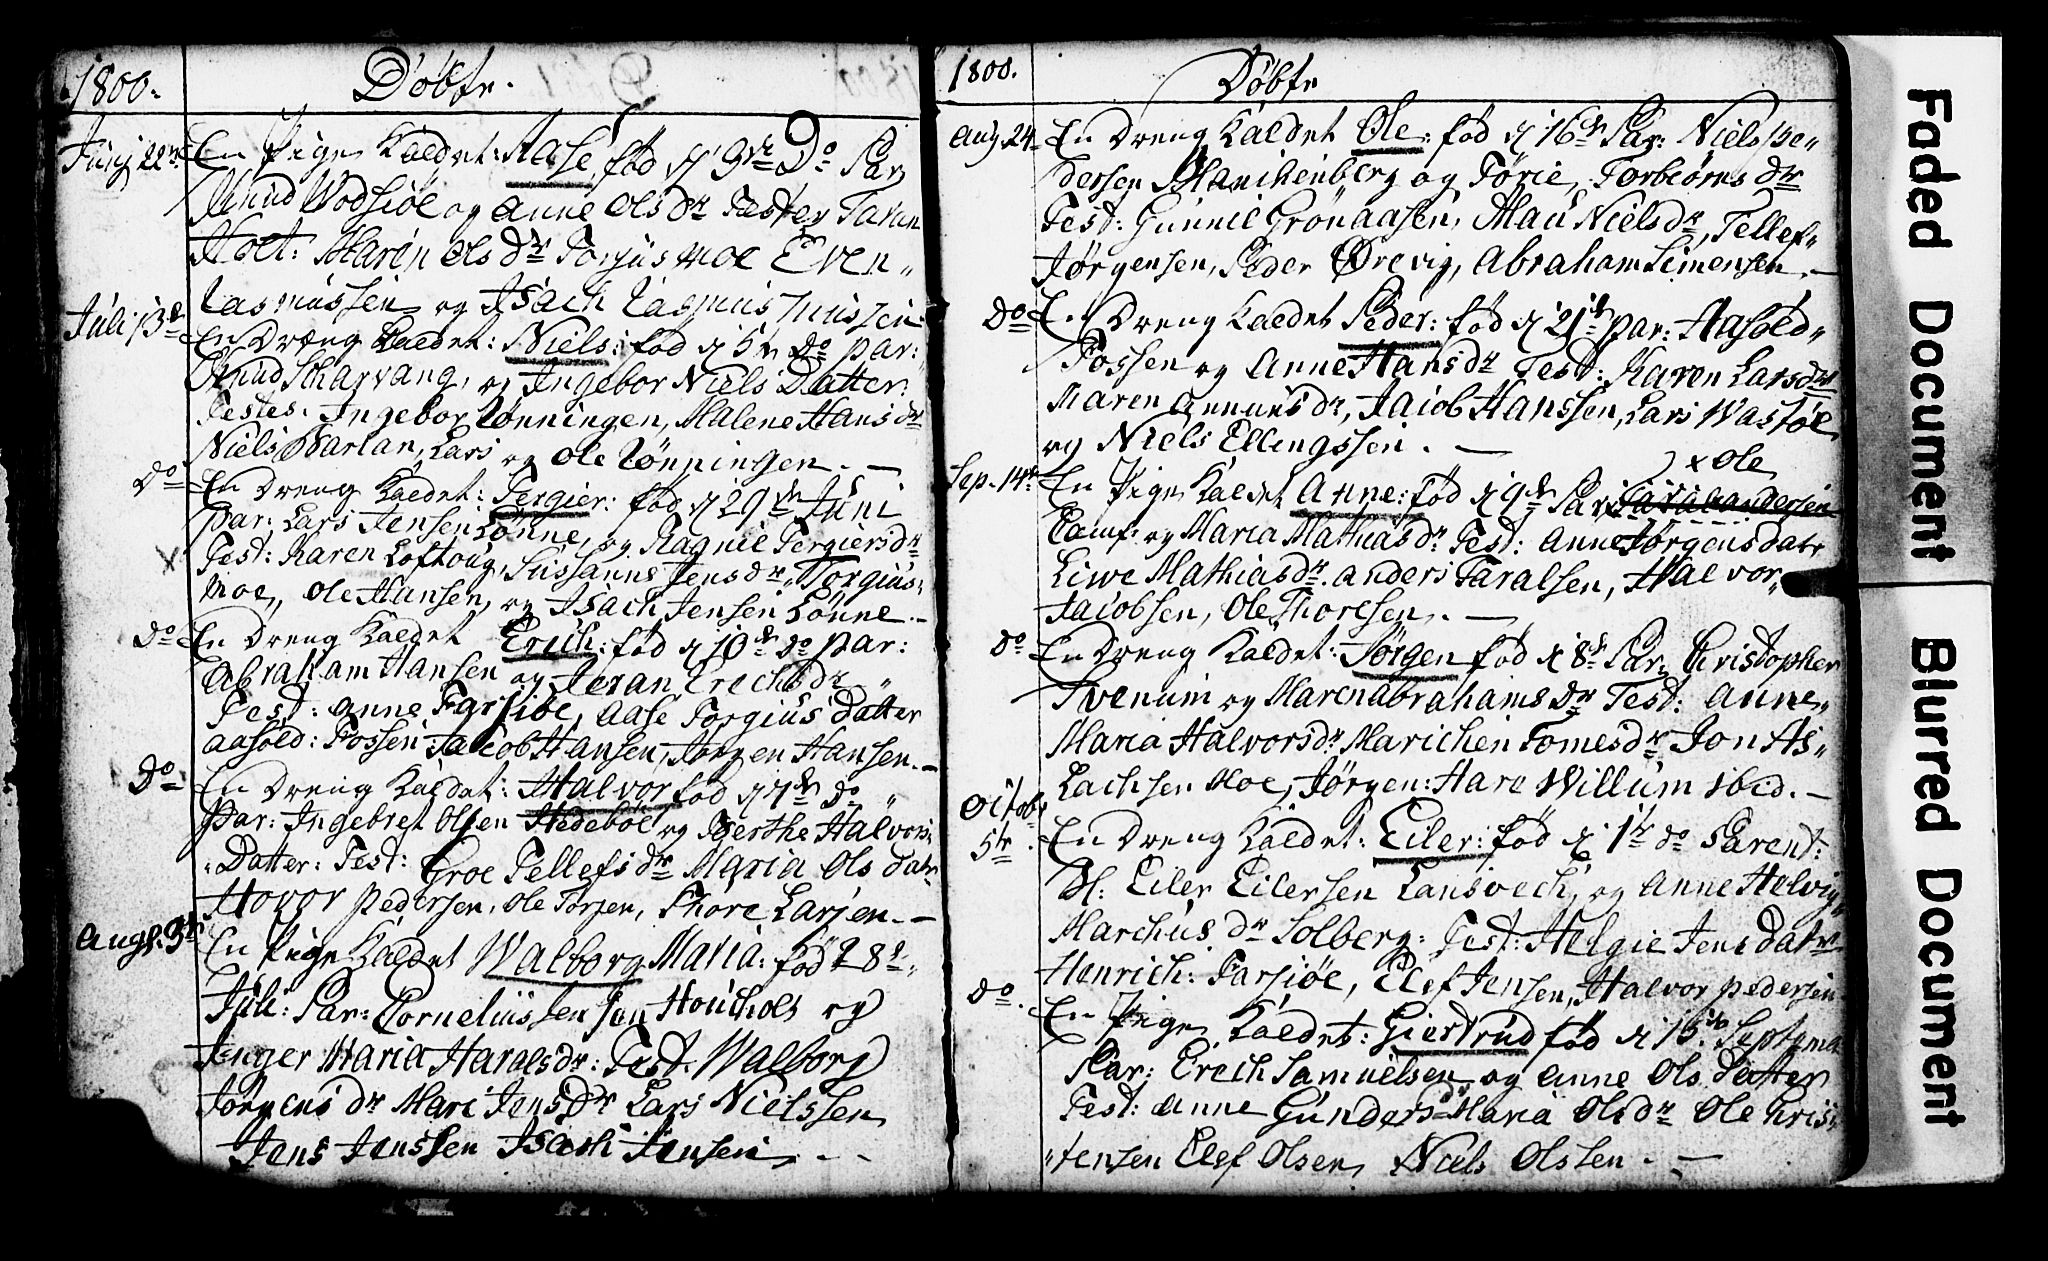 1800.
Döbte.
Junj 22de En Pige Kaldet: Aase, fød d 9de Do Par
Knud Wodsiöe og Anne Olsdr Testes Taran
Holt: Maren Olsdr Torjus Moe Even
Rasmussen og Isach Rasmussen
Juli 13de En Dreng Kaldet: Niels: fød d 5te do par:
Knud Scharvang, og Ingebor Niels Datter:
Testes. Ingebor Rönningen, Malene Hansdr
Niels Warlan, Lars og Ole Rönningen. —
Do En Dreng Kaldet: Tergier: fød d 29de Juni
Par: Lars Jensen Lönne, og Ragnil Tergiersdr
Test: Karen Loftoug, Sussanne Jensdr, Torgius
Moe, Ole Hansen, og Isach Jensen Lönne. —
do En Dreng Kaldet Erich: fød d 10de do Par:
Abraham Hansen og Joran Erichsdr
Test: Anne Farsiöe, Aase Torgius Datter
Aasold: Fossen Jacob Hansen, Jörgen Hansen. —
Do En Dreng Kaldet: Halvor fød d 7de do
Par: Ingebret Olsen Hedeböe og Berthe Halvors
Datter: Test: Groe Tellefsdr Maria Ols datr
Hovor Pedersen, Ole Torsen, Thore Larsen. —
Augs. 3de En Pige Kaldet Walborg Maria: fød 28de
Juli: Par: Cornelius Sen Jon Houcholt og
Inger Maria Haralsdr: Test. Walborg
Jörgensdr Mari Jensdr Lars Nielssen
Jens Jenssen Isach Jensen. —
1800.
Döbte
Aug. 24. En Dreng Kaldet Ole: fød d 16de Par: Niels Pe
dersen Blanchenberg og Törie, Torbiörns dr
Test: Gunnil Grönaasen, Mari Nielsdr, Tellef
Jörgensen, Peder Ørevig, Abraham Simensen. —
Do En Dreng Kaldet Peder: fød d 21de par: Aasold
Fossen og Anne Hansdr Test: Karen Larsdr
Maren Annunsdr, Jacob Hanssen, Lars Wasföl
og Niels Ellingssen. —
x Ole
Sep. 14de En Pige Kaldet Anne: fød d 9de Par: Taral Andersen
Camp og Maria Mathiasdr Test: Anne Jörgensdatr
Liwe Mathiasdr. Anders Taralsen, Halvor
Jacobsen, Ole Thoresen. —
do En Dreng Kaldet: Jörgen fød d 8de Par, Christopher
Svenum og Maren Abrahamsdr Test: Anne
Maria Halvorsdr Marichen Tomesdr Jon As
Lachsen Moe, Jörgen: Hare Willum ibid. —
Octobr 5te En Dreng Kaldet: Eiler: fød d 1te do Parent:
Sl: Eiler Eilersen Lansvech, og Anne Helvig
Marchus dr Solberg: Test: Helgie Jens datr
Henrich: Farsiöe, Elef Jensen, Halvor Pedersen
do. En Pige Kaldet: Giertrud fød d 15de Septema
Par: Erech Samuelsen og Anne Ols Datter
Test: Anne Gundersdr Maria Olsdr Ole Chris
tensen Elef Olsen, Niels Olssen. —
Faded Document
Blurred Document